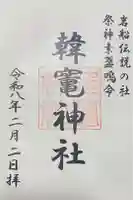 岩船伝説の社
祭神素盞嗚命
韓竈神社
令和八年二月二日拝